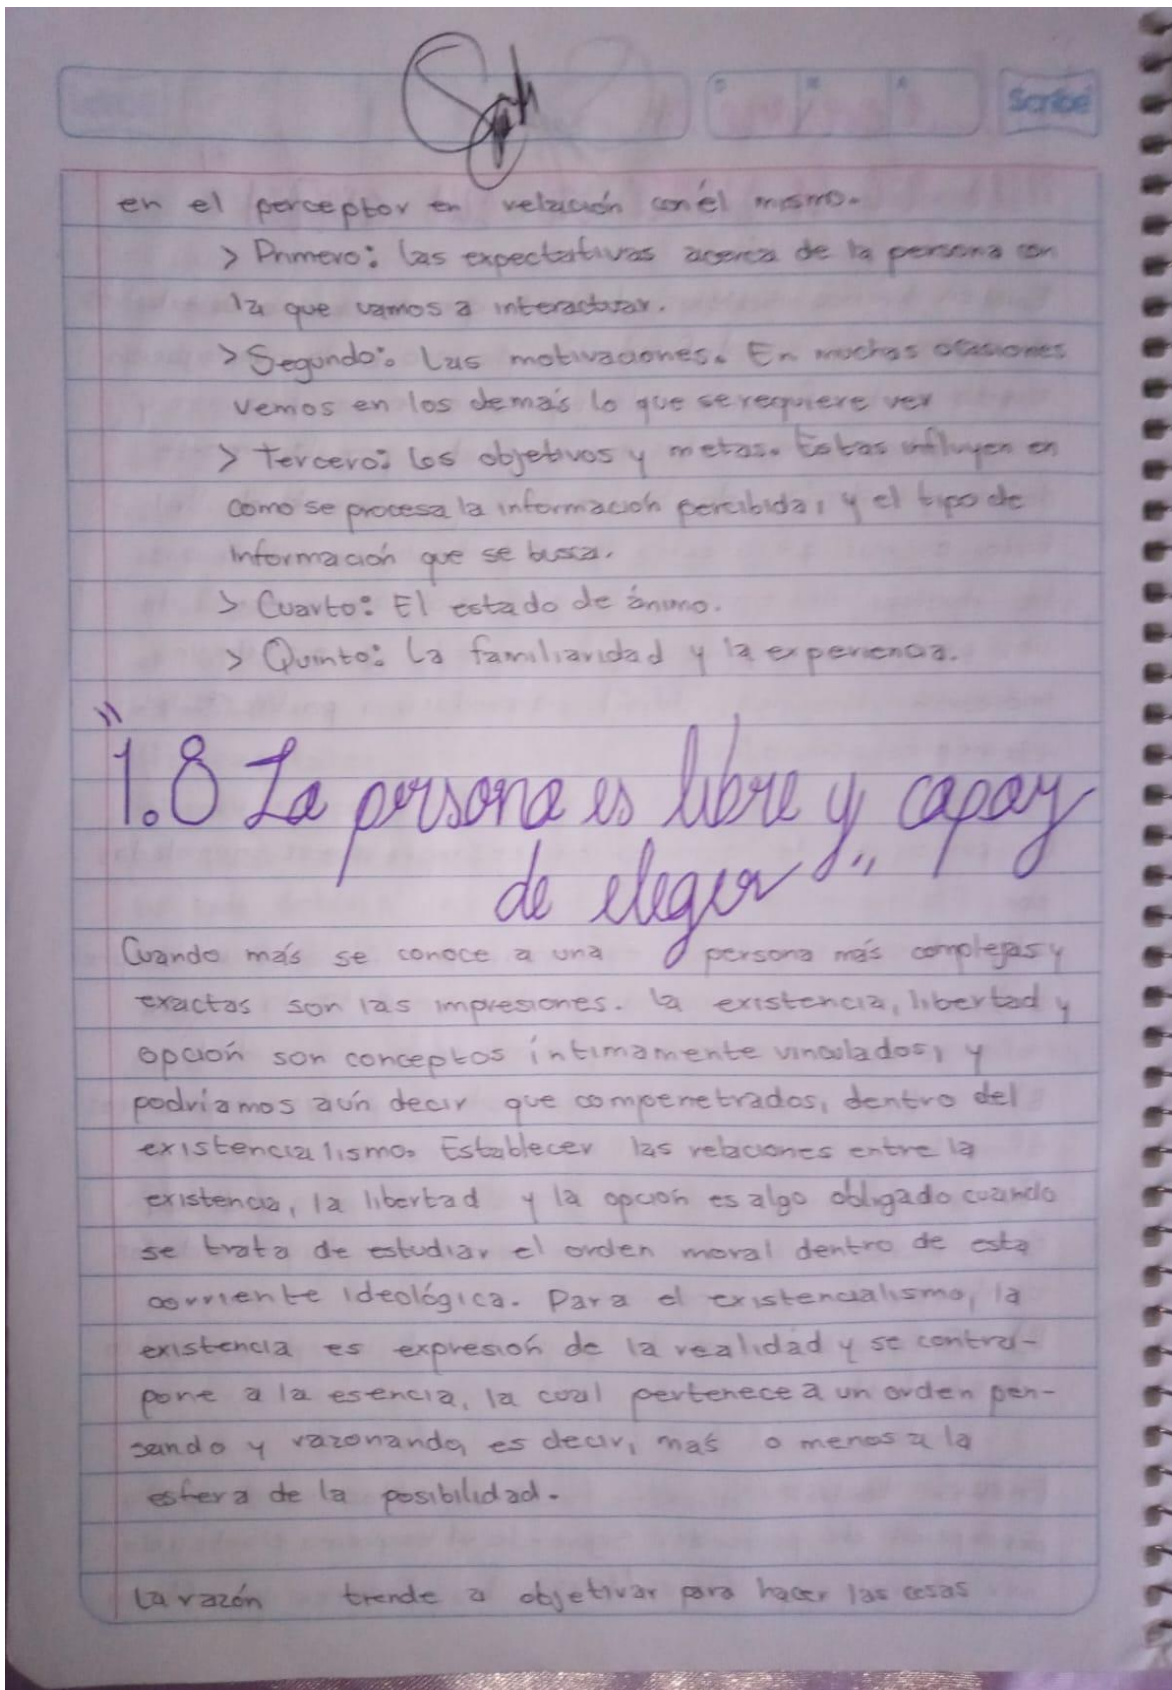 Scribe
en el perceptor en relación con él mismo.
> Primero: las expectativas acerca de la persona con
la que vamos a interactuar.
> Segundo: Las motivaciones. En muchas ocasiones
vemos en los demás lo que se requiere ver
> Tercero: los objetivos y metas. Estas influyen en
como se procesa la información percibida, y el tipo de
información que se busca.
> Cuarto: El estado de ánimo.
> Quinto: La familiaridad y la experiencia.
"1.8 La persona es libre y capaz
de elegir"
Cuando más se conoce a una persona más complejas y
exactas son las impresiones. la existencia, libertad y
opción son conceptos íntimamente vinculados, y
podríamos aún decir que compenetrados, dentro del
existencialismo. Establecer las relaciones entre la
existencia, la libertad y la opción es algo obligado cuando
se trata de estudiar el orden moral dentro de esta
corriente ideológica. Para el existencialismo, la
existencia es expresión de la realidad y se contra-
pone a la esencia, la cual pertenece a un orden pen-
sando y razonando, es decir, más o menos a la
esfera de la posibilidad.
La razón tiende a objetivar para hacer las cosas